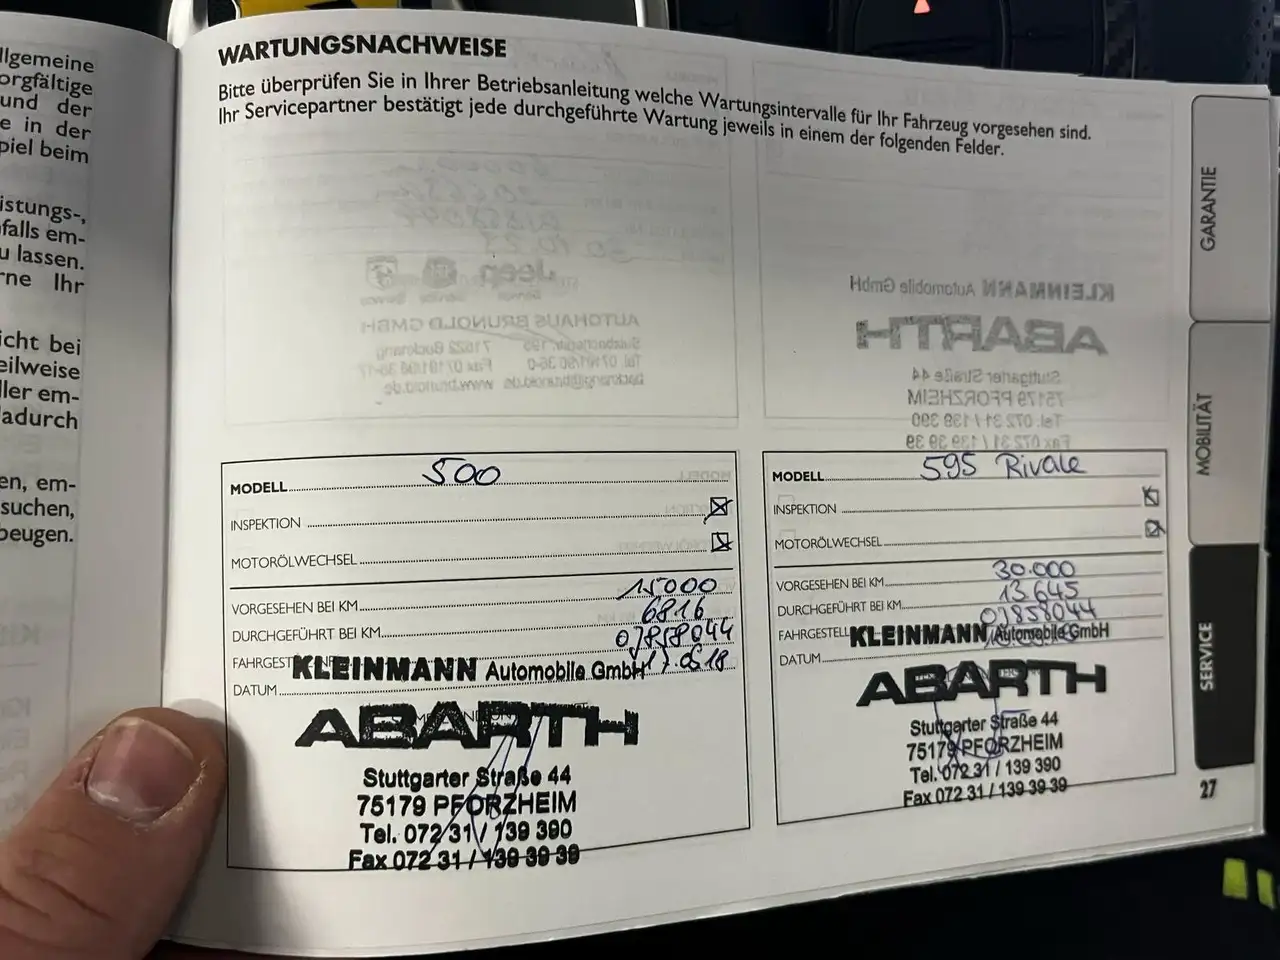 llgemeine
orgfältige
und der
e in der
piel beim
istungs-,
falls em-
u lassen.
rne Ihr
icht bei
eilweise
ller em-
dadurch
en, em-
suchen,
beugen.
WARTUNGSNACHWEISE
Bitte überprüfen Sie in Ihrer Betriebsanleitung welche Wartungsintervalle für Ihr Fahrzeug vorgesehen sind.
Ihr Servicepartner bestätigt jede durchgeführte Wartung jeweils in einem der folgenden Felder.
MODELL 500
INSPEKTION
MOTORÖLWECHSEL
VORGESEHEN BEI KM 15000
DURCHGEFÜHRT BEI KM 6816
FAHRGEST 07858044
DATUM 17.0518
KLEINMANN Automobile GmbH
ABARTH
Stuttgarter Straße 44
75179 PFORZHEIM
Tel. 072 31 / 139 390
Fax 072 31 / 139 39 39
MODELL 595 Rivale
INSPEKTION
MOTORÖLWECHSEL
VORGESEHEN BEI KM 30.000
DURCHGEFÜHRT BEI KM 13645
FAHRGESTELL 07858044
DATUM
KLEINMANN Automobile GmbH
ABARTH
Stuttgarter Straße 44
75179 PFORZHEIM
Tel. 072 31 / 139 390
Fax 072 31 / 139 39 39
GARANTIE
MOBILITÄT
SERVICE
27